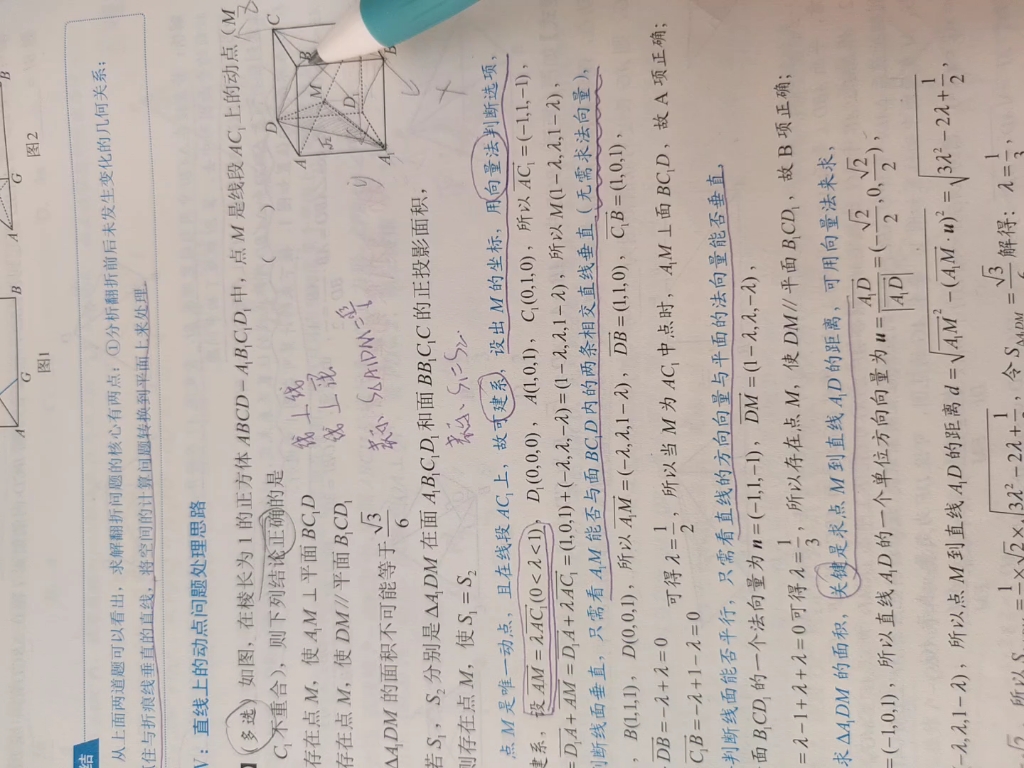 A G B
图1
A G B
图2
结
从上面两道题可以看出，求解翻折问题的核心有两点：①分析翻折前后未发生变化的几何关系；
住与折痕线垂直的直线，将空间的计算问题转换到平面上来处理.
V：直线上的动点问题处理思路
(多选) 如图，在棱长为1的正方体ABCD－A₁B₁C₁D₁中，点M是线段AC₁上的动点（M
C₁不重合），则下列结论正确的是（ ）
存在点M，使A₁M⊥平面BC₁D
线上线
存在点M，使DM//平面B₁CD₁
线上
△A₁DM的面积不可能等于√3/6
若S₁，S₂分别是△A₁DM在面A₁B₁C₁D₁和面BB₁C₁C的正投影面积，
则存在点M，使S₁=S₂
点M是唯一动点，且在线段AC₁上，故可建系，设出M的坐标，用向量法判断选项，
建系，设AM=λAC₁(0<λ<1)，D₁(0,0,0)，A(1,0,1)，C₁(0,1,0)，所以AC₁=(-1,1,-1)，
=D₁A+AM=D₁A+λAC₁=(1,0,1)+(-λ,λ,-λ)=(1-λ,λ,1-λ)，所以M(1-λ,λ,1-λ)，
判断线面垂直，只需看A₁M能否与面BC₁D内的两条相交直线垂直（无需求法向量），
，B(1,1,1)，D(0,0,1)，所以A₁M=(-λ,λ,1-λ)，DB=(1,1,0)，C₁B=(1,0,1)，
DB=-λ+λ=0
C₁B=-λ+1-λ=0
可得λ=1/2，所以当M为AC₁中点时，A₁M⊥面BC₁D，故A项正确；
判断线面能否平行，只需看直线的方向向量与平面的法向量能否垂直，
面B₁CD₁的一个法向量为u=(-1,1,-1)，DM=(1-λ,λ,-λ)，
=λ-1+λ+λ=0可得λ=1/3，所以存在点M，使DM//平面B₁CD₁，故B项正确；
求△A₁DM的面积，关键是求点M到直线A₁D的距离，可用向量法来求，
=(-1,0,1)，所以直线A₁D的一个单位方向向量为u=A₁D/|A₁D|=(-√2/2,0,√2/2)，
-λ,λ,1-λ)，所以点M到直线A₁D的距离d=√(A₁M²-(A₁M·u)²)=√(3λ²-2λ+1/2)，
所以S =1/2×√2×√(3λ²-2λ+1/2)，令S△A₁DM=√3/6解得：λ=1/3，